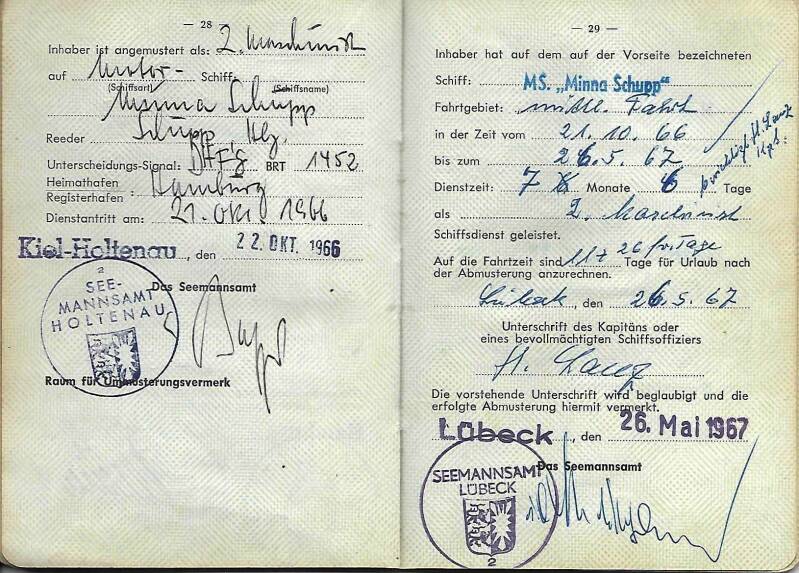 — 28 —
Inhaber ist angemustert als: 2. Maschinist
auf Motor- Schiff:
(Schiffsart) (Schiffsname)
Minna Schupp
Reeder Schupp Hbg.
Unterscheidungs-Signal: BRT 1452
Heimathafen
Registerhafen : Hamburg
Dienstantritt am: 21. Okt. 1966
Kiel-Holtenau, den 22. OKT. 1966
Das Seemannsamt
2
SEE-
MANNSAMT
HOLTENAU
Raum für Ummusterungsvermerk
— 29 —
Inhaber hat auf dem auf der Vorseite bezeichneten
Schiff: MS. „Minna Schupp"
Fahrtgebiet: mittl. Fahrt
in der Zeit vom 21. 10. 66
bis zum 26. 5. 67
berichtigt H. Lanz
Kpt.
Dienstzeit: 7 Monate 6 Tage
als 2. Maschinist
Schiffsdienst geleistet.
Auf die Fahrtzeit sind 117 Tage für Urlaub nach
der Abmusterung anzurechnen.
Lübeck, den 26. 5. 67
Unterschrift des Kapitäns oder
eines bevollmächtigten Schiffsoffiziers
H. Lanz
Die vorstehende Unterschrift wird beglaubigt und die
erfolgte Abmusterung hiermit vermerkt.
Lübeck, den 26. Mai 1967
Das Seemannsamt
SEEMANNSAMT
LÜBECK
2